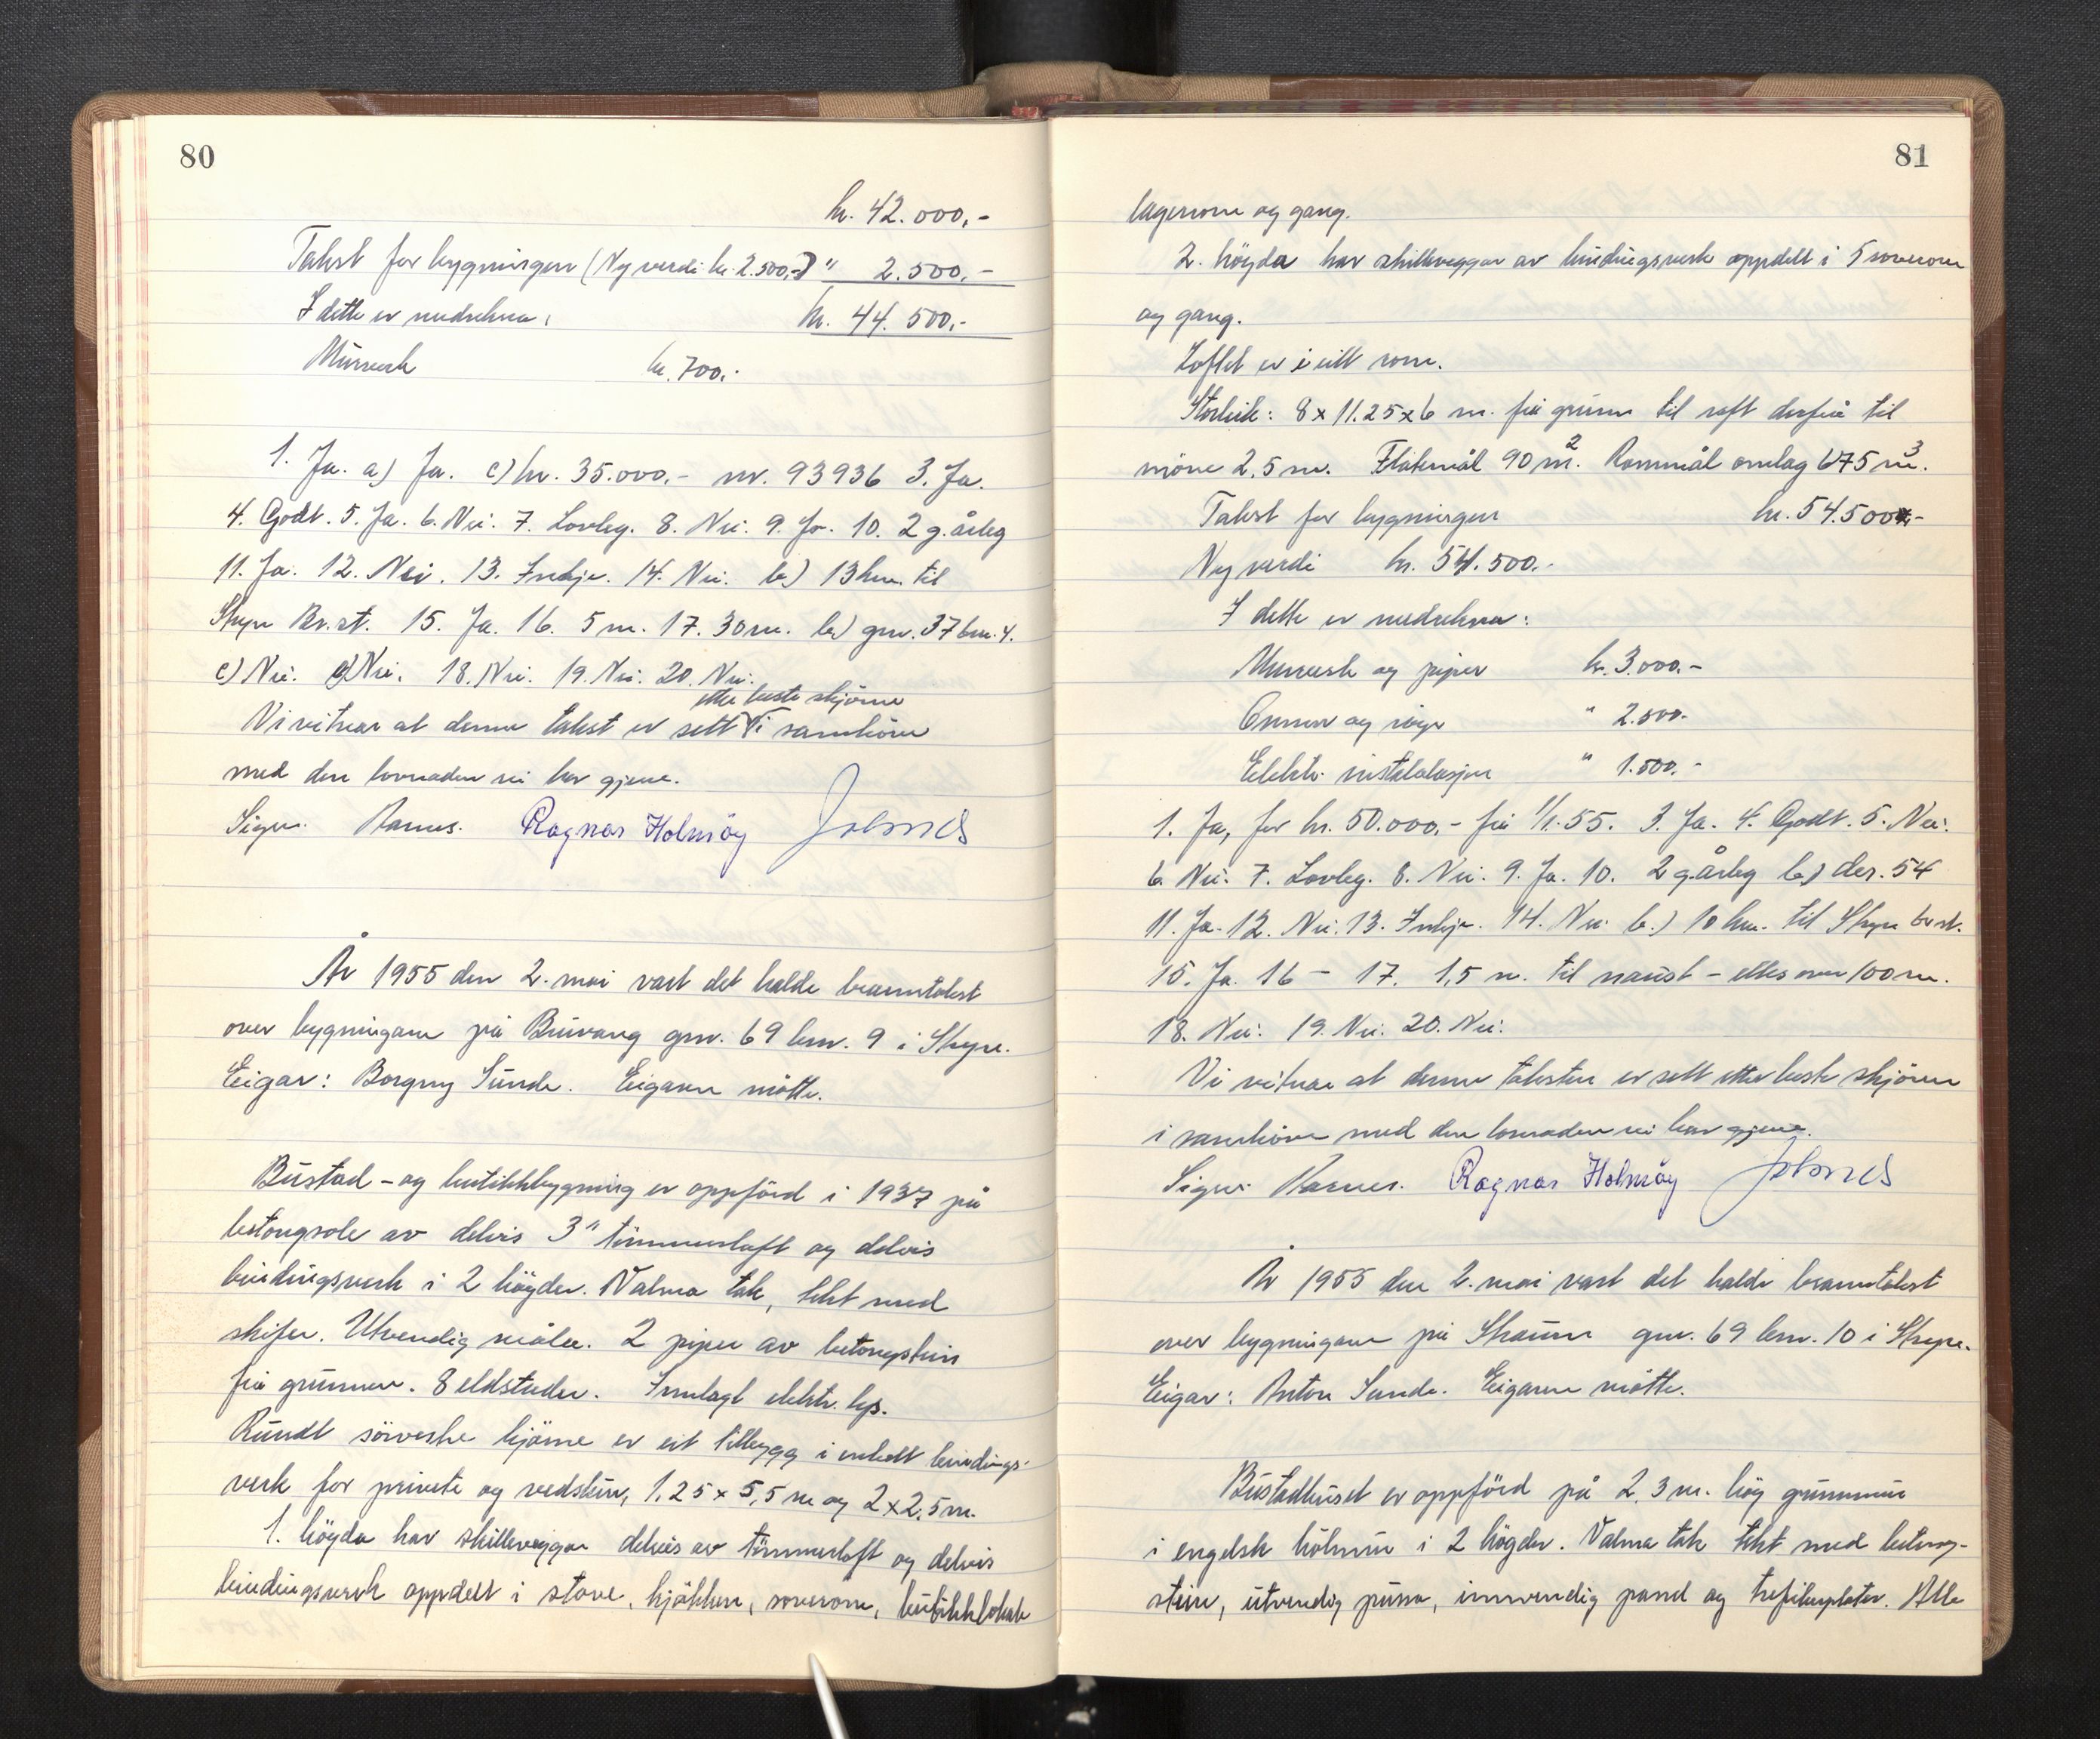 80
kr. 42.000,-
Takst for bygningen (Ny verdi kr. 2.500,-) " 2.500,-
I dette er medrekna: kr. 44.500,-
Mürverk kr. 700,-
1. Ja. a) Ja. c) kr. 35.000,- nr. 93936 3. Ja.
4. Godt. 5. Ja. 6. Nei. 7. Lovleg. 8. Nei. 9. Ja. 10. 2 g. årleg
11. Ja. 12. Nei. 13. Inkje. 14. Nei. b) 13 km. til
Stryn Br.st. 15. Ja. 16. 5 m. 17. 30 m. b) gnr. 37 bnr. 4.
c) Nei. d) Nei. 18. Nei. 19. Nei. 20. Nei.
etter beste skjöne
Vi vitnar at denne takst er sett i samhöve
med den lovnaden vi har gjeve.
Signe. Ramus. Ragnar Holmöy
År 1955 den 2. mai vart det halde branntakst
over bygningane på Buvang gnr. 69 bnr. 9 i Stryn.
Eigar: Borgny Sünde. Eigaren mötte.
Büstad- og butikkbygning er oppförd i 1937 på
betongsole av delvis 3" tömmerlaft og delvis
bindingsverk i 2 högder. Valma tak, tekt med
skifer. Utvendig måla. 2 piper av betongstein
frå grunnen. 8 eldstader. Innlagt elektr. lys.
Ründt sörvestre hjörne er eit tilbygg i enkelt bindings-
verk for privete og vedskür, 1,25 x 5,5 m og 2 x 2,5 m.
1. högda har skilleveggar delvis av tömmerlaft og delvis
bindingsverk oppdelt i stove, kjökken, soverom, butikklokale
81
lagerrom og gang.
2. högda har skilleveggar av bindingsverk oppdelt i 5 soverom
og gang.
Loftet er i eitt rom.
Storleik: 8 x 11.25 x 6 m. frå grunn til raft derfrå til
möne 2,5 m. Flatemål 90 m². Rommål omlag 675 m³.
Takst for bygningen kr. 54.500,-
Ny verdi kr. 54.500.-
I dette er medrekna:
Murverk og piper kr. 3.000.-
Omnar og rör " 2.500.-
Elektr. installasjon " 1.500.-
1. Ja, for kr. 50.000,- frå 1/1.55. 3. Ja. 4. Godt. 5. Nei.
6. Nei. 7. Lovleg. 8. Nei. 9. Ja. 10. 2 g. årleg b) des. 54
11. Ja. 12. Nei. 13. Inkje. 14. Nei. b.) 10 km. til Stryn br.st.
15. Ja. 16 - 17. 1,5 m. til naust - elles over 100 m.
18. Nei. 19. Nei. 20. Nei.
Vi vitnar at denne taksten er sett etter beste skjönn
i samhöve med den lovnaden vi har gjeve.
Signe. Ramus. Ragnar Holmöy
År 1955 den 2. mai vart det halde branntakst
over bygningane på gnr. 69 bnr. 10 i Stryn.
Eigar: Anton Sunde. Eigaren mötte.
Büstadhüset er oppförd på 2,3 m. hög grunnmür
i engelsk hólmür i 2 högder. Valma tak tekt med betong-
stein, ütvendig püssa, innvendig panel og trefiberplater. Alle